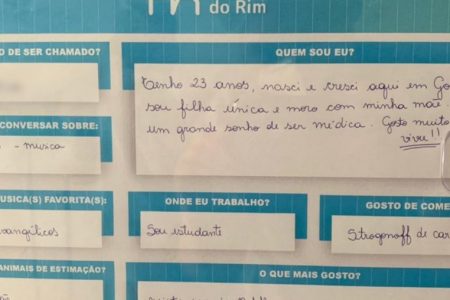 do Rim
O DE SER CHAMADO?
QUEM SOU EU?
Tenho 23 anos, nasci e cresci aqui em Go
sou filha única e moro com minha mãe
um grande sonho de ser médica. Gosto muito
viver!!
CONVERSAR SOBRE:
- musica
USICA(S) FAVORITA(S):
ONDE EU TRABALHO?
GOSTO DE COME
vangélicos
Sou estudante
Strogonoff de car
ANIMAIS DE ESTIMAÇÃO?
O QUE MAIS GOSTO?